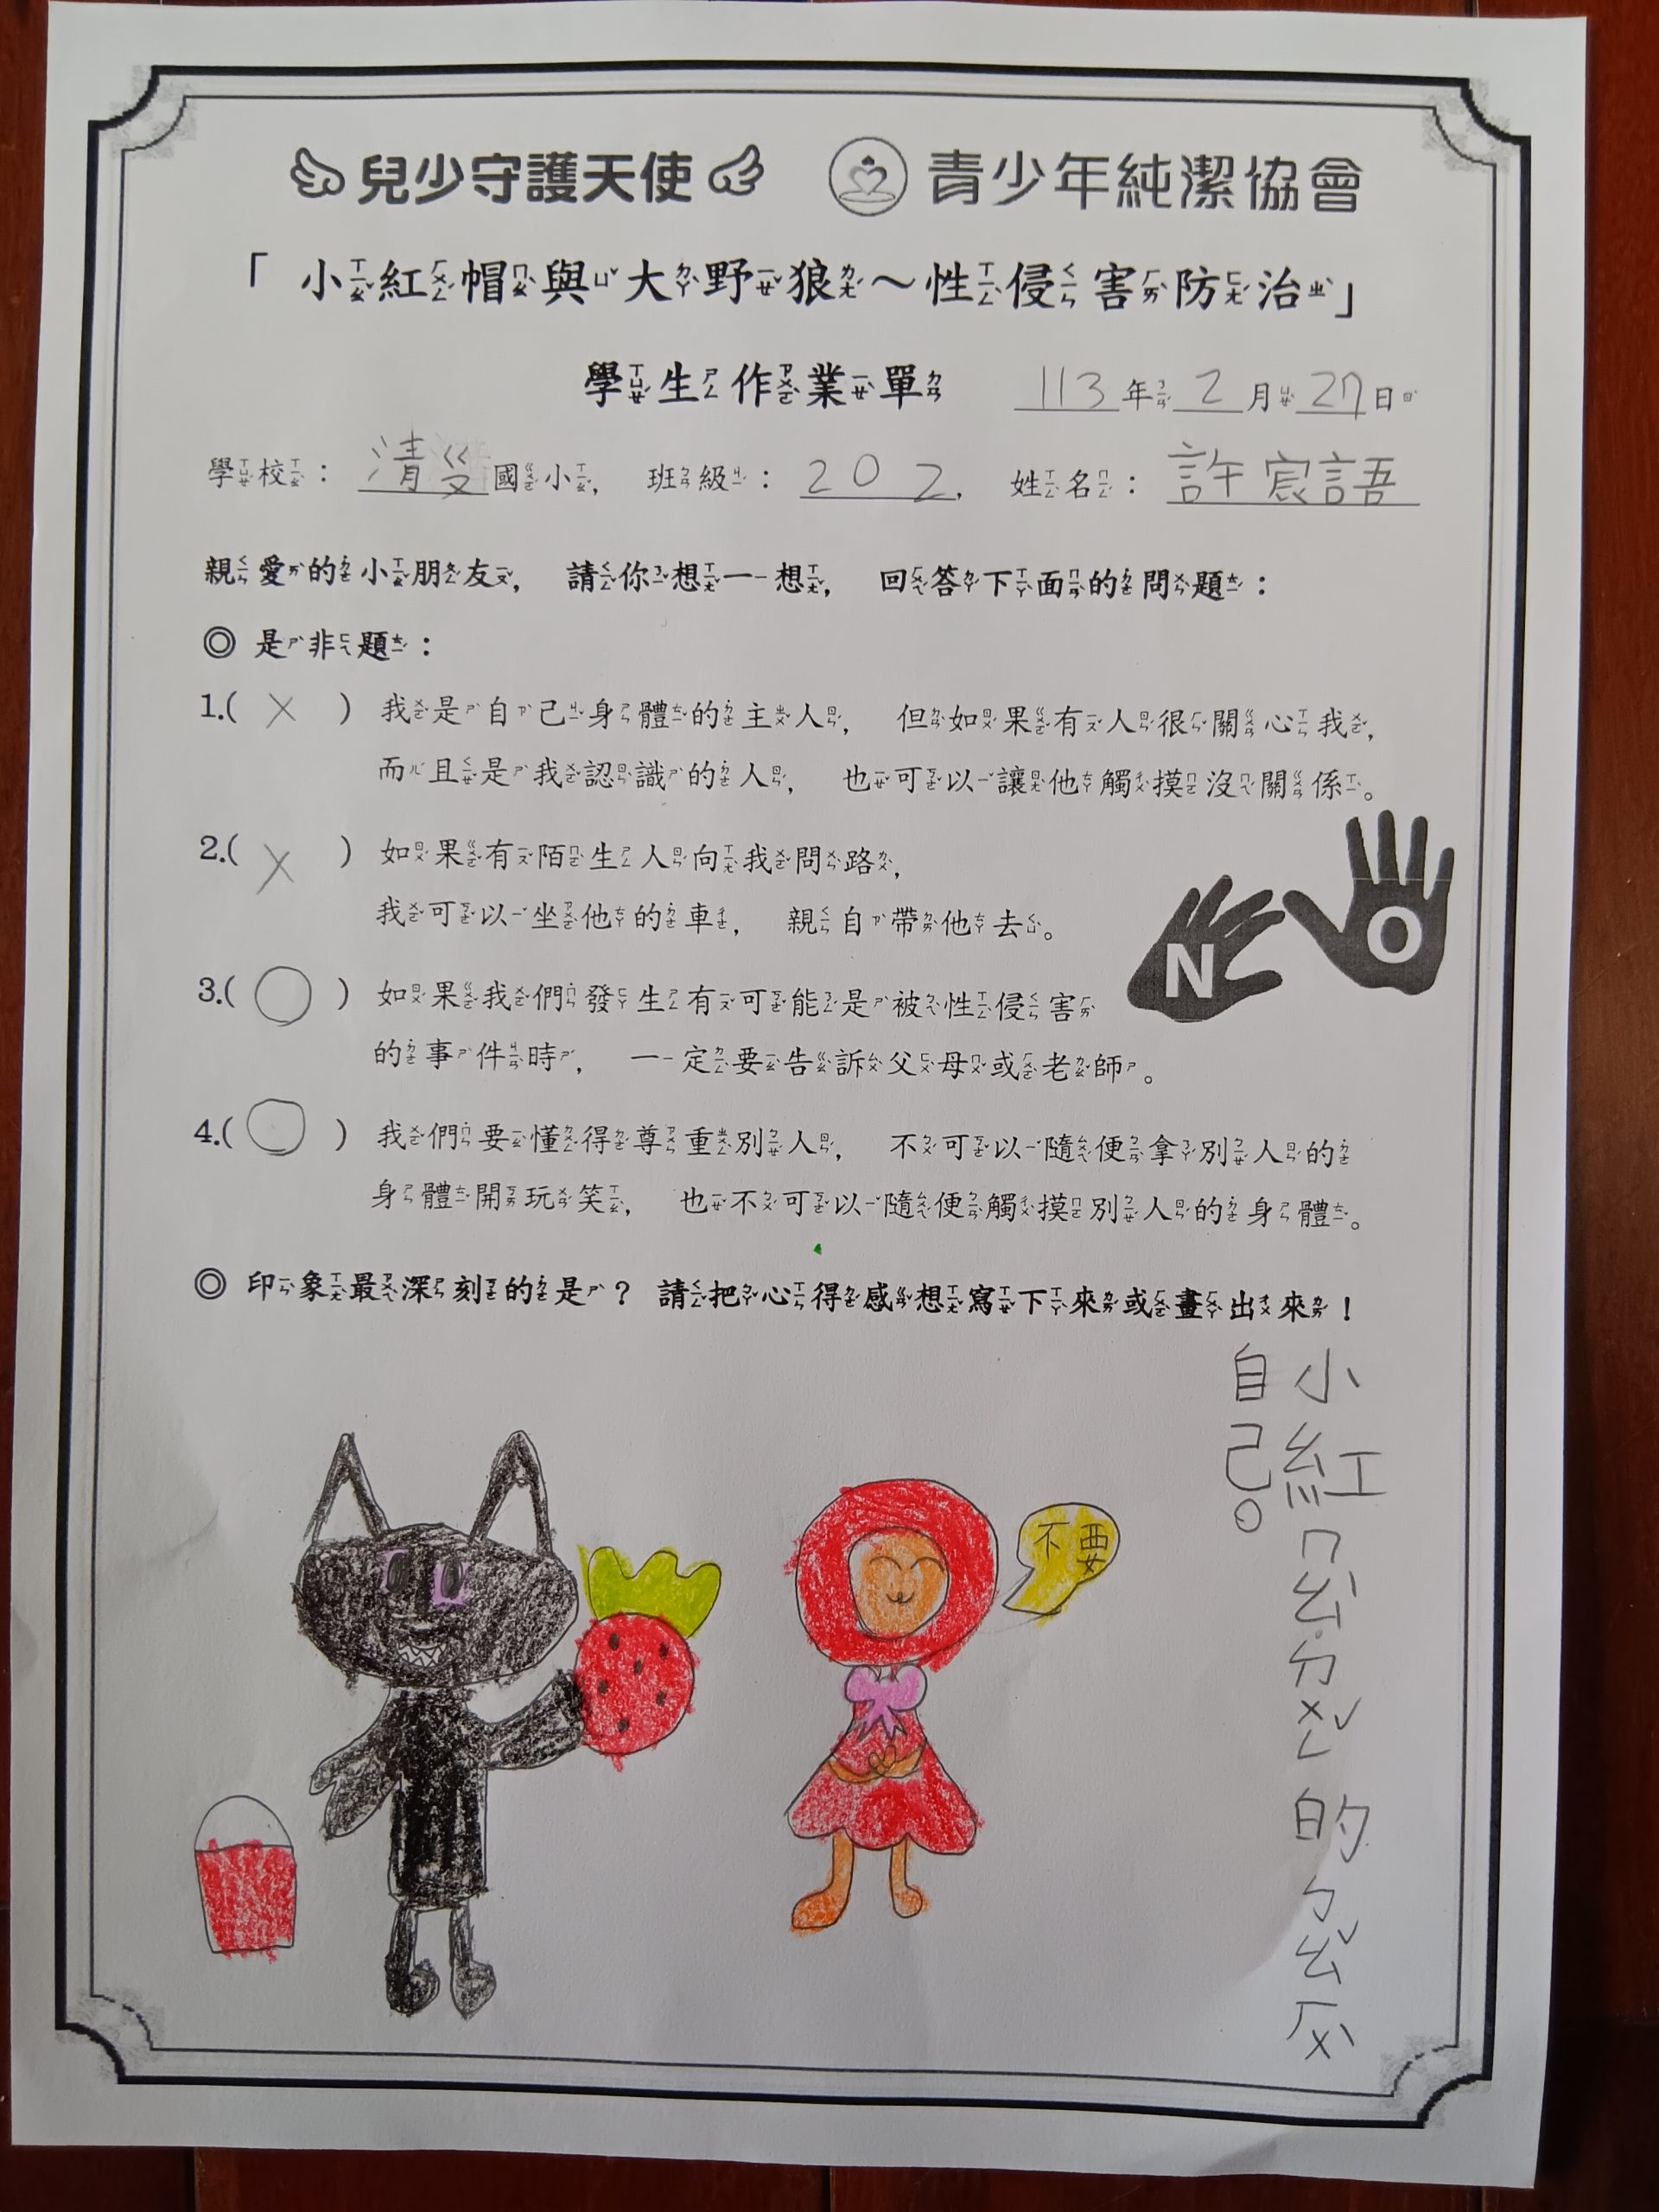 兒少守護天使 青少年純潔協會
「小紅帽與大野狼～性侵害防治」
學生作業單 113年2月27日
學校：清 國小, 班級：202, 姓名：許宸語
親愛的小朋友, 請你想一想, 回答下面的問題：
◎ 是非題：
1.( X ) 我是自己身體的主人, 但如果有人很關心我,
而且是我認識的人, 也可以讓他觸摸沒關係。
2.( X ) 如果有陌生人向我問路,
我可以坐他的車, 親自帶他去。
N O
3.( ○ ) 如果我們發生有可能是被性侵害
的事件時, 一定要告訴父母或老師。
4.( ○ ) 我們要懂得尊重別人, 不可以隨便拿別人的
身體開玩笑, 也不可以隨便觸摸別人的身體。
◎ 印象最深刻的是？請把心得感想寫下來或畫出來！
小紅ㄇㄠˋㄉㄨㄥˇ的ㄅㄠˇㄏㄨˋ
自己。
不要